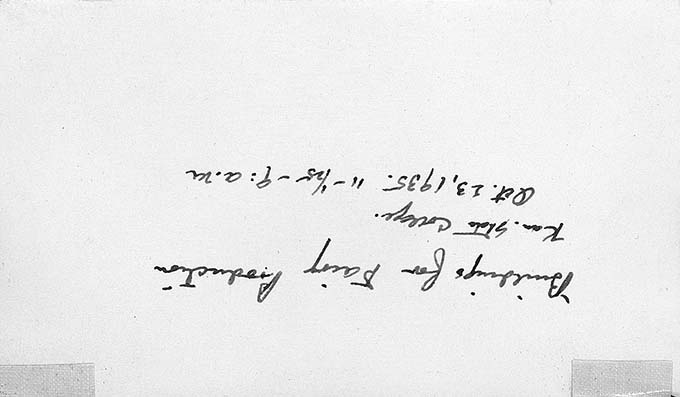 Buildings for Dairy Production
Kan. State College.
Oct. 23, 1935. 11 - 1/25 - 9: a.m